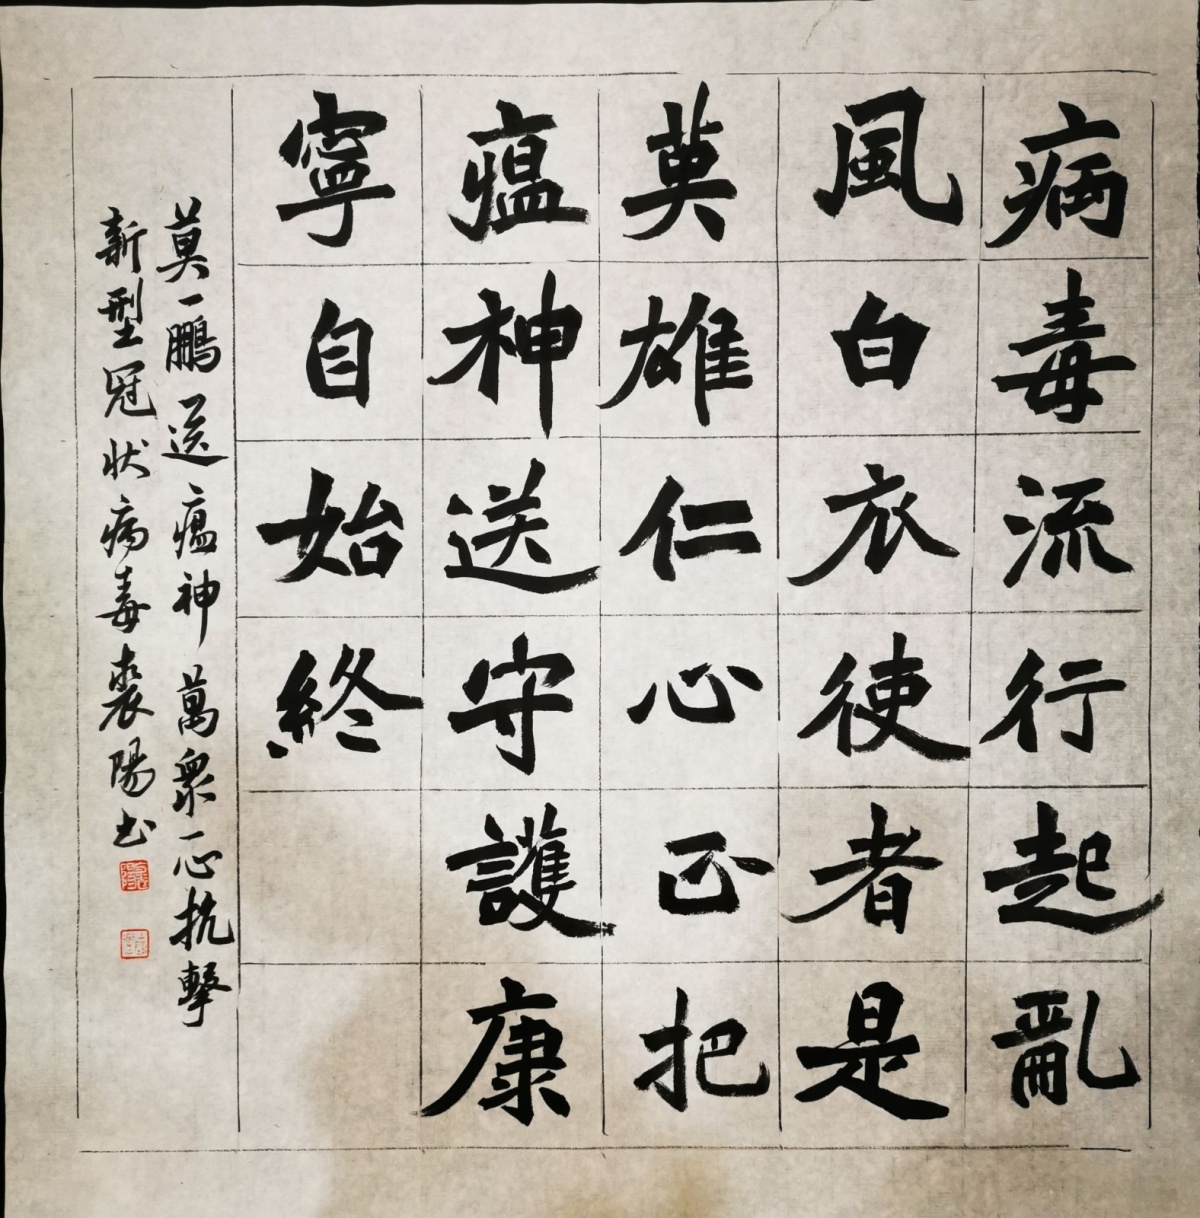 病毒流行起亂
風白衣使者是
英雄仁心正把
瘟神送守護康
寧自始終
莫一鵬送瘟神萬衆一心抗擊
新型冠状病毒裴陽书